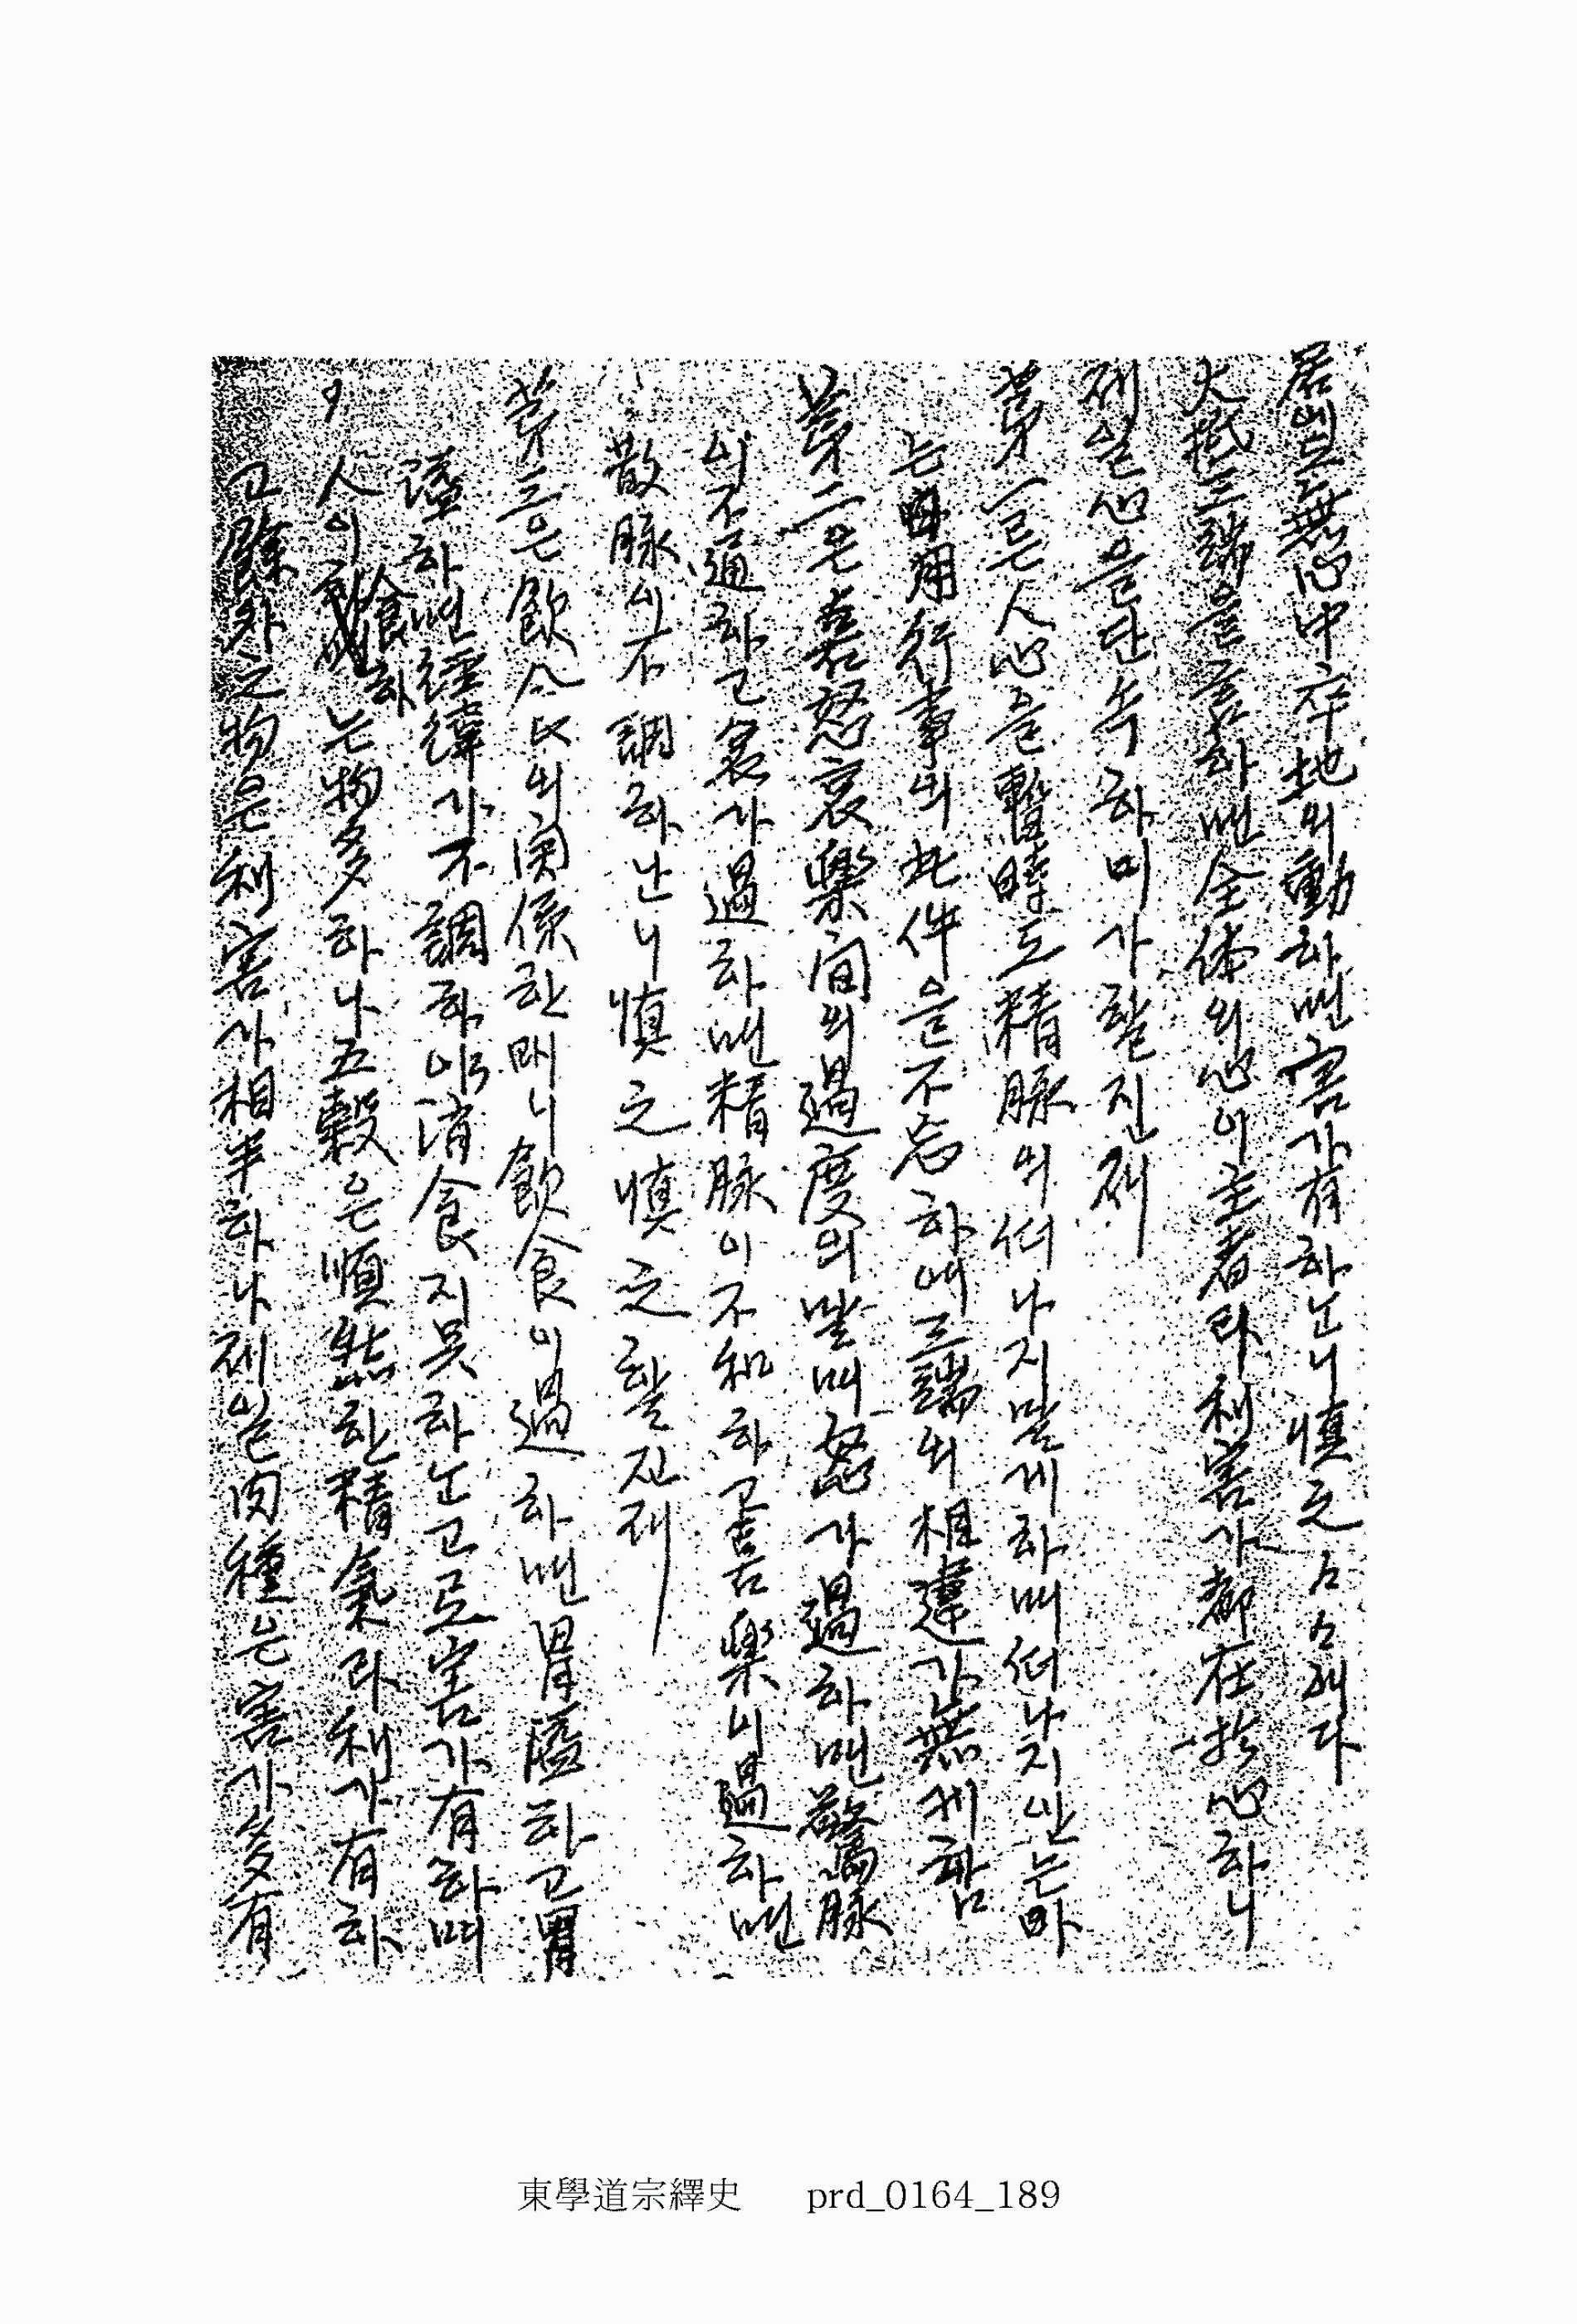 居에도 無心中 卒地의 動하면 害가 有하느니 愼之 々々제다
大抵 三端을 論하면 全体의 心이 主者라 利害가 都在於心하니
제일 心을 단속하미 가할진제
第一은 人心을 暫時도 精脉의 떠나지 말게 하며 떠나지 안는 마
는 日用行事의 此件을 不忘하야 三端의 相違가 無케 함
第二은 喜怒哀樂間의 過度의 말며 怒가 過하면 驚脉
이 不通하고 哀가 過하면 精脉이 不和하고 喜樂이 過하면
散脉이 不調하난니 愼之愼之할진제
第三은 飮食의 関係한 때니 飮食이 過하면 胃溢하고 胃
溢하면 經緯가 不調하야 消食지 못하는고로 害가 有하며
人이 食하는 物多하나 五穀은 順然한 精氣라 利가 有하
고 餘外之物은 利害가 相半하나 제일 肉種은 害가 多有
東學道宗繹史 prd_0164_189